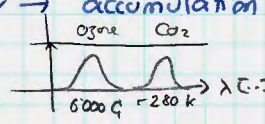 → accumulation
Ozone CO₂
→ λ [..
6000 G -280 K